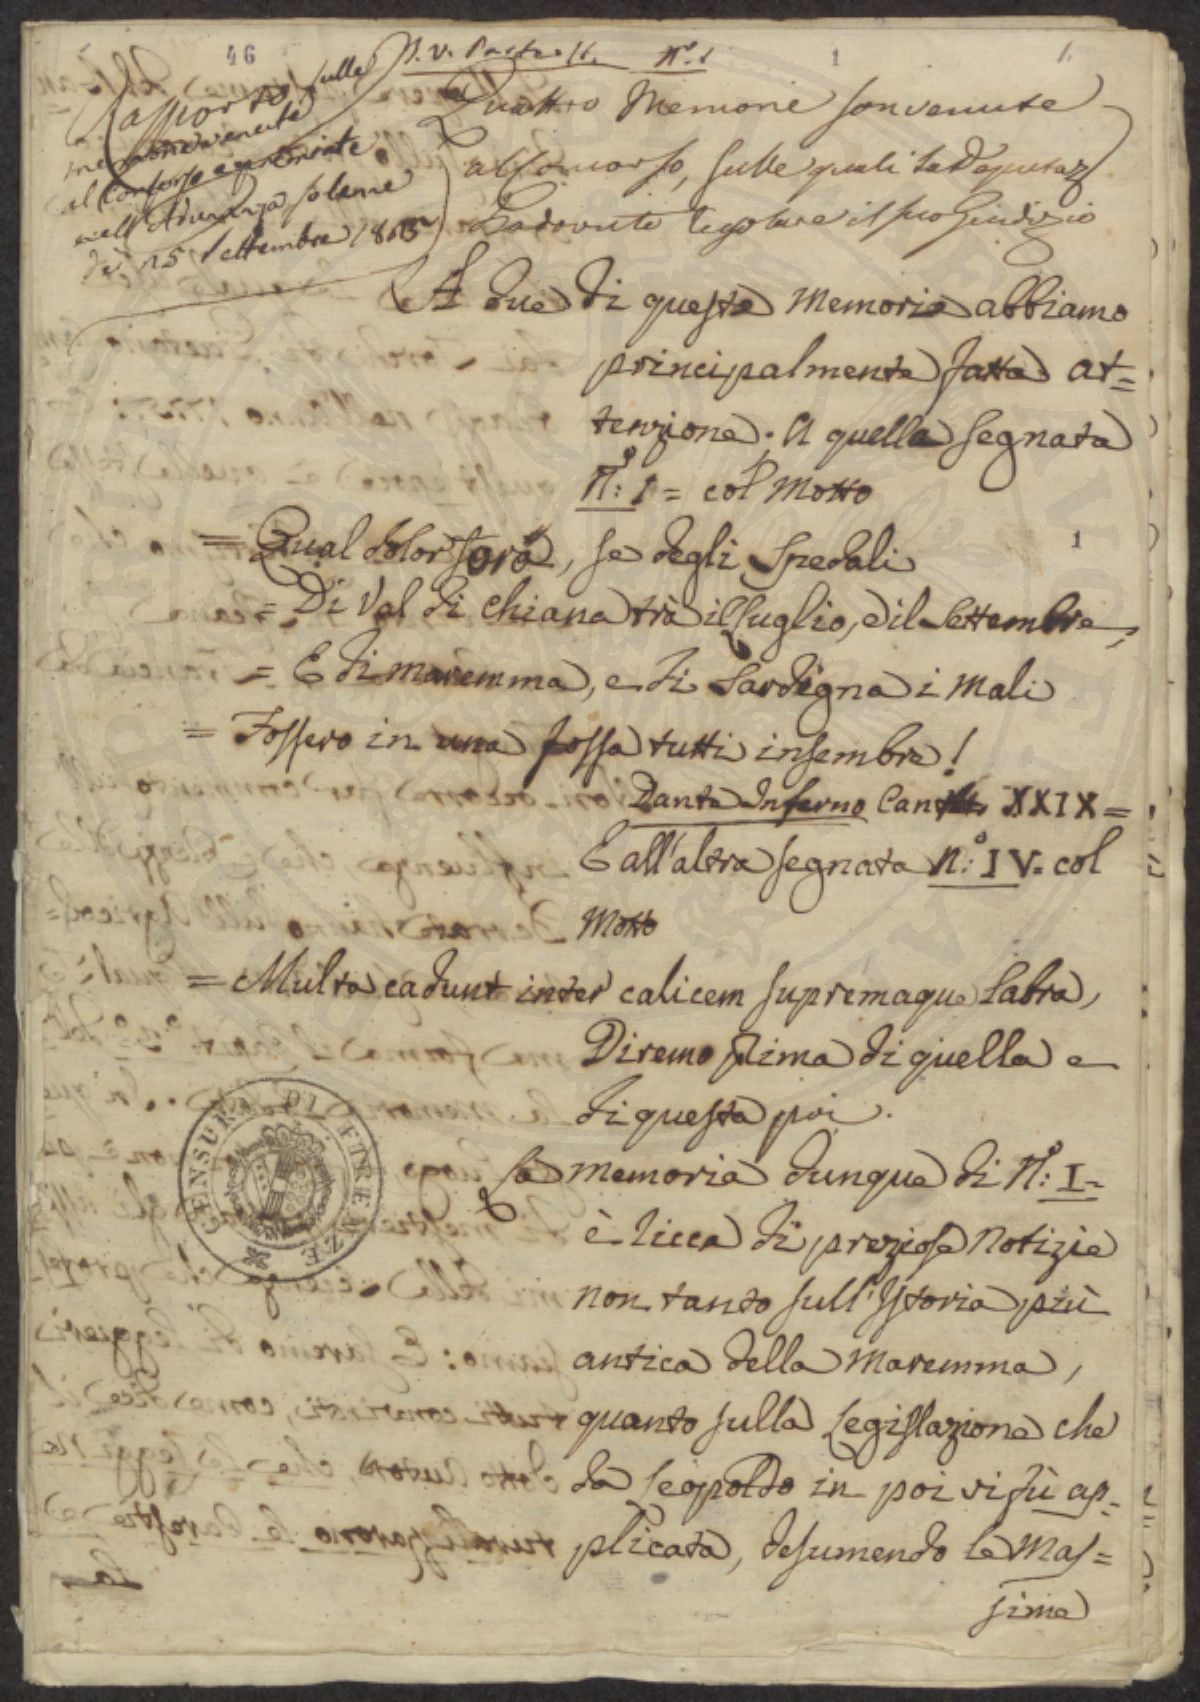 46
1
1.
N.° 1
Rapporto sulle
memorie venute
al Concorso e premiate
nell'Adunanza solenne
dì 15 Settembre 1803
Quattro Memorie son venute
al Concorso, sulle quali la Deputaz
dovute il suo Giudizio
A due di queste Memorie abbiamo
principalmente fatta at=
tenzione. A quella segnata
N.° I = col Motto
1
= Qual dolor fora, se degli Spedali
= Di Val di Chiana trà il Luglio, e il Settembre,
= E di maremma, e di Sardigna i mali
= Fossero in una fossa tutti insembre!
Dante Inferno Canto XXIX =
E all'altra segnata N.° IV. col
Motto
= Multa cadunt inter calicem supremaque labra,
Diremo prima di quella e
di questa poi.
La memoria dunque di N.° I =
è licca di preziose Notizie
non tanto sull'Istoria più
antica della Maremma,
quanto sulla Legislazione che
da Leopoldo in poi vi fù ap=
plicata, desumendo le Mas=
sime
CENSURA DI FIRENZE